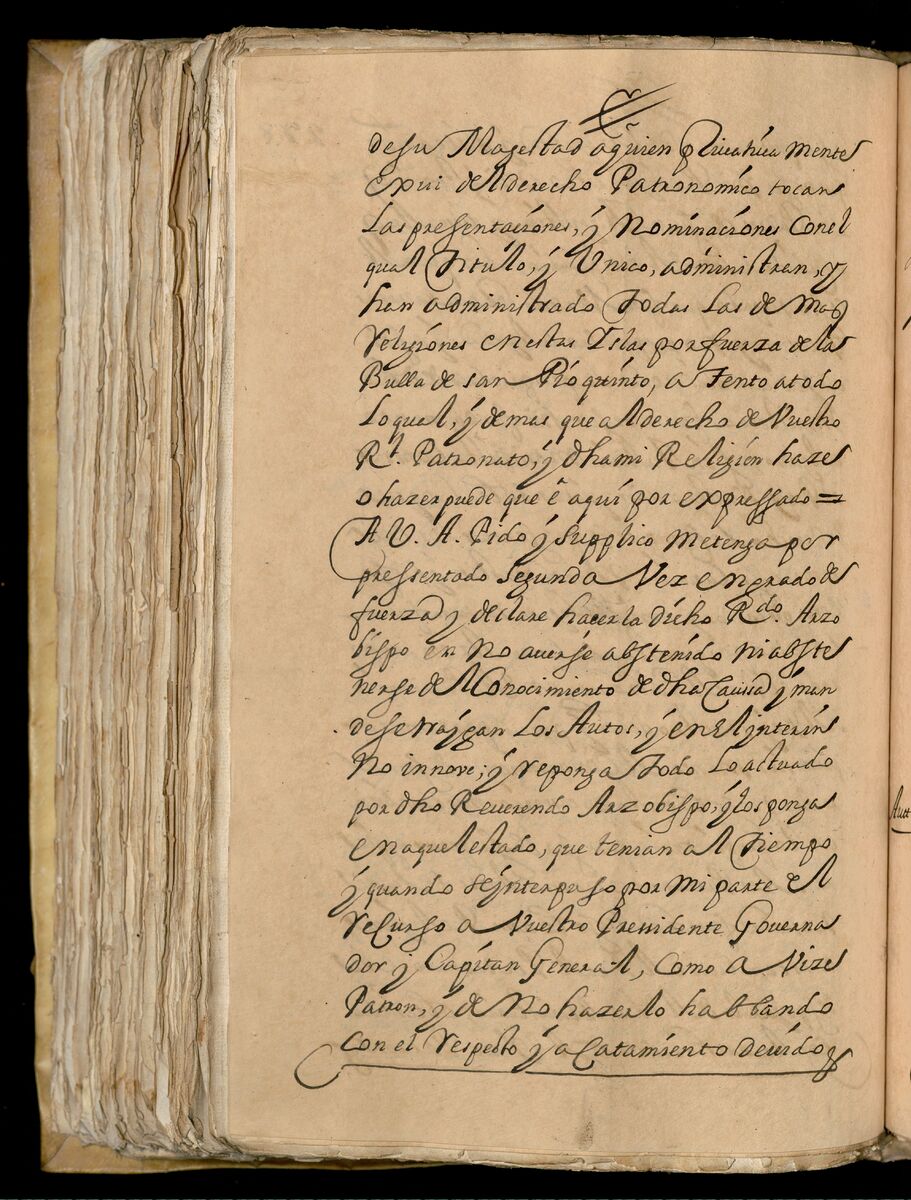 de su Magestad aquien privativa mente
ex vi del derecho Patronomico tocan
Las pressentaciónes, ý Nominaciónes Con el
qual Titulo, ý Unico, administran, y
han administrado Todas las de mas
Religiónes en estas Islas por fuerza de la
Bulla de san Pio quinto, a Tento atodo
Lo qual, ý de mas que al derecho de Vuestro
Rl. Patronato, ý dha mi Religión haze
o hazer puede que è aquí por expressado =
A V. A. Pido ý supplico me tenga por
pressentado segunda Vez en grado de
fuerza y declare hacerla dicho Rdo. Arzo
bispo en no averse abstenido ni abste
nerse del Conocimiento de dha Caussa ý man
de se traygan Los Autos, ý en el ynterin
No innove; ý reponga Todo lo actuado
por dho Reverendo Arzobispo, ý los ponga
en aquel estado, que tenian al Tiempo
ý quando se ynterpuso por mi parte el
reCurso a Vuestro Pressidente Governa
dor ý Capitan General, Como a Vize
Patron, ý de No hazerlo habllando
Con el respecto ý aCatamiento devido
Aut